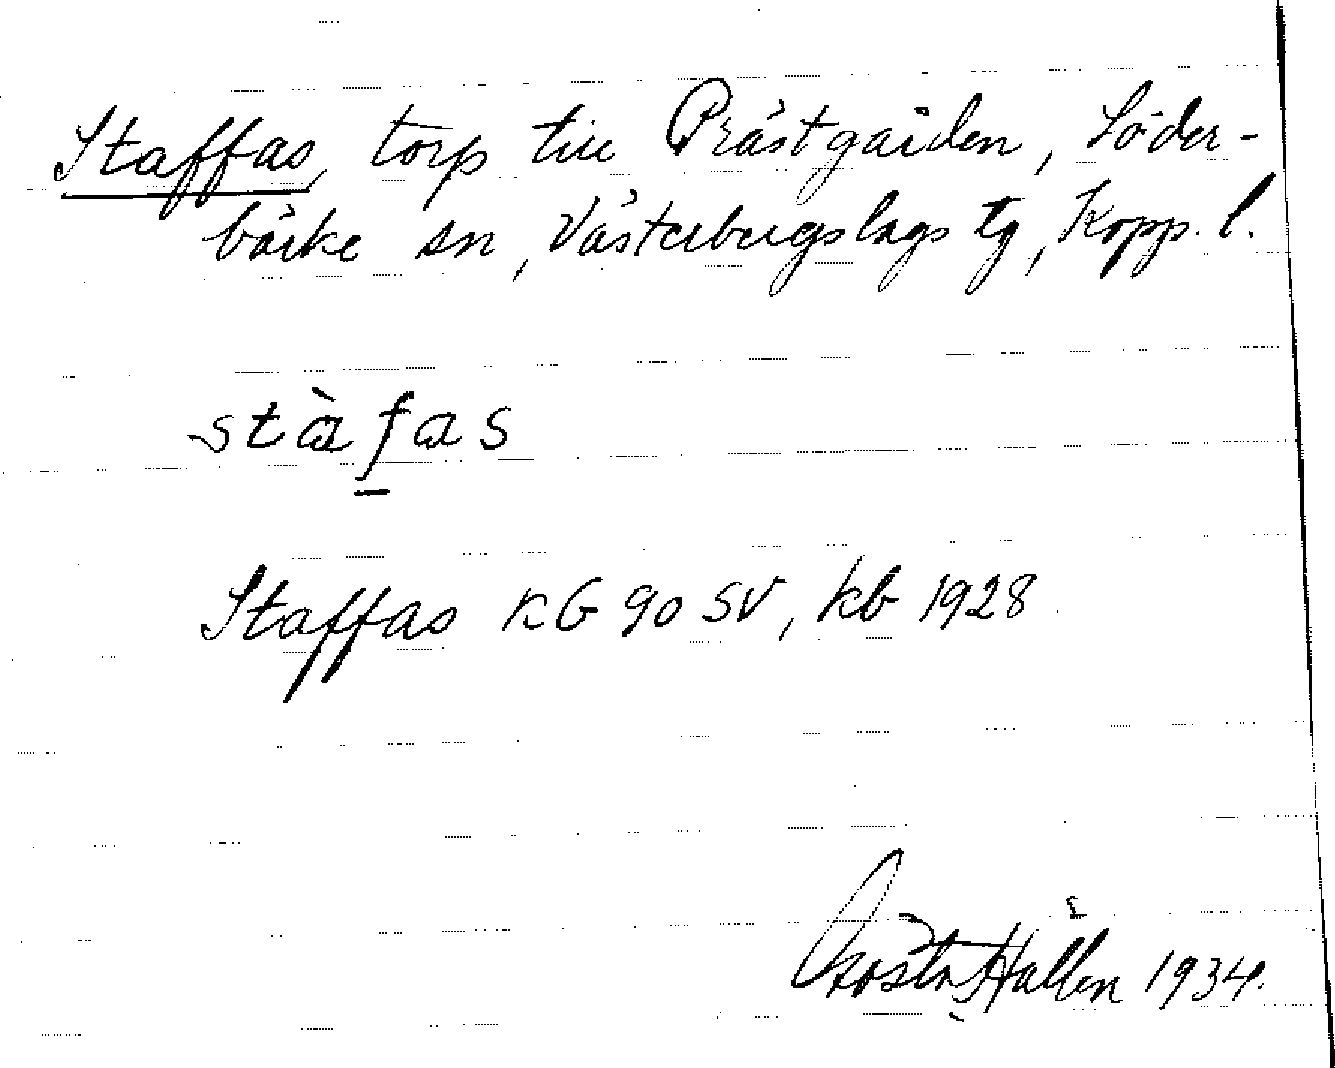 Staffas, torp till Prästgården, Söder-
bärke sn, Västerbergslags tg, Kopp. l.
stàf̲as
Staffas KG 90 SV, kb 1928
Gösta Hallén 1934.